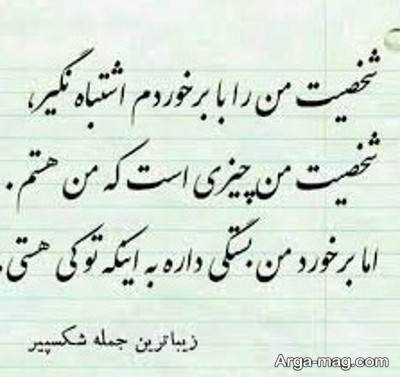 شخصیت من را با برخوردم اشتباه نگیر،
شخصیت من چیزی است که من هستم .
اما برخورد من بستگی داره به اینکه تو کی هستی.
زیباترین جمله شکسپیر
Arga-mag.com